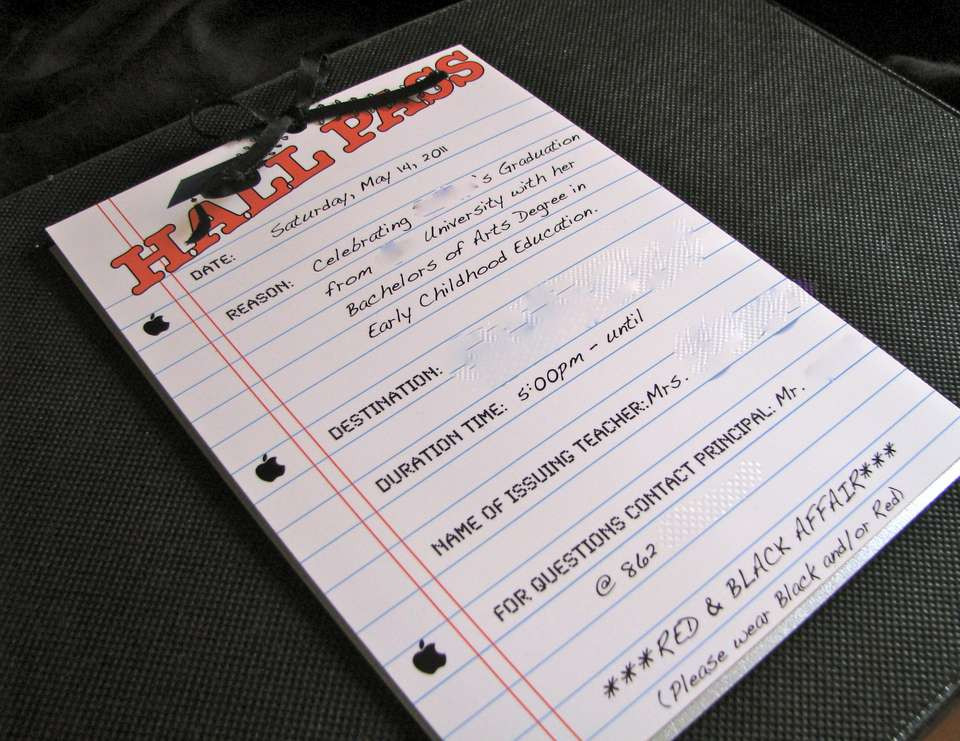 HALL PASS
DATE: Saturday, May 14, 2011
REASON: Celebrating 's Graduation
from University with her
Bachelors of Arts Degree in
Early Childhood Education.
DESTINATION:
DURATION TIME: 5:00pm - until
NAME OF ISSUING TEACHER: Mrs.
FOR QUESTIONS CONTACT PRINCIPAL: Mr.
@ 862
***RED & BLACK AFFAIR***
(Please wear Black and/or Red)